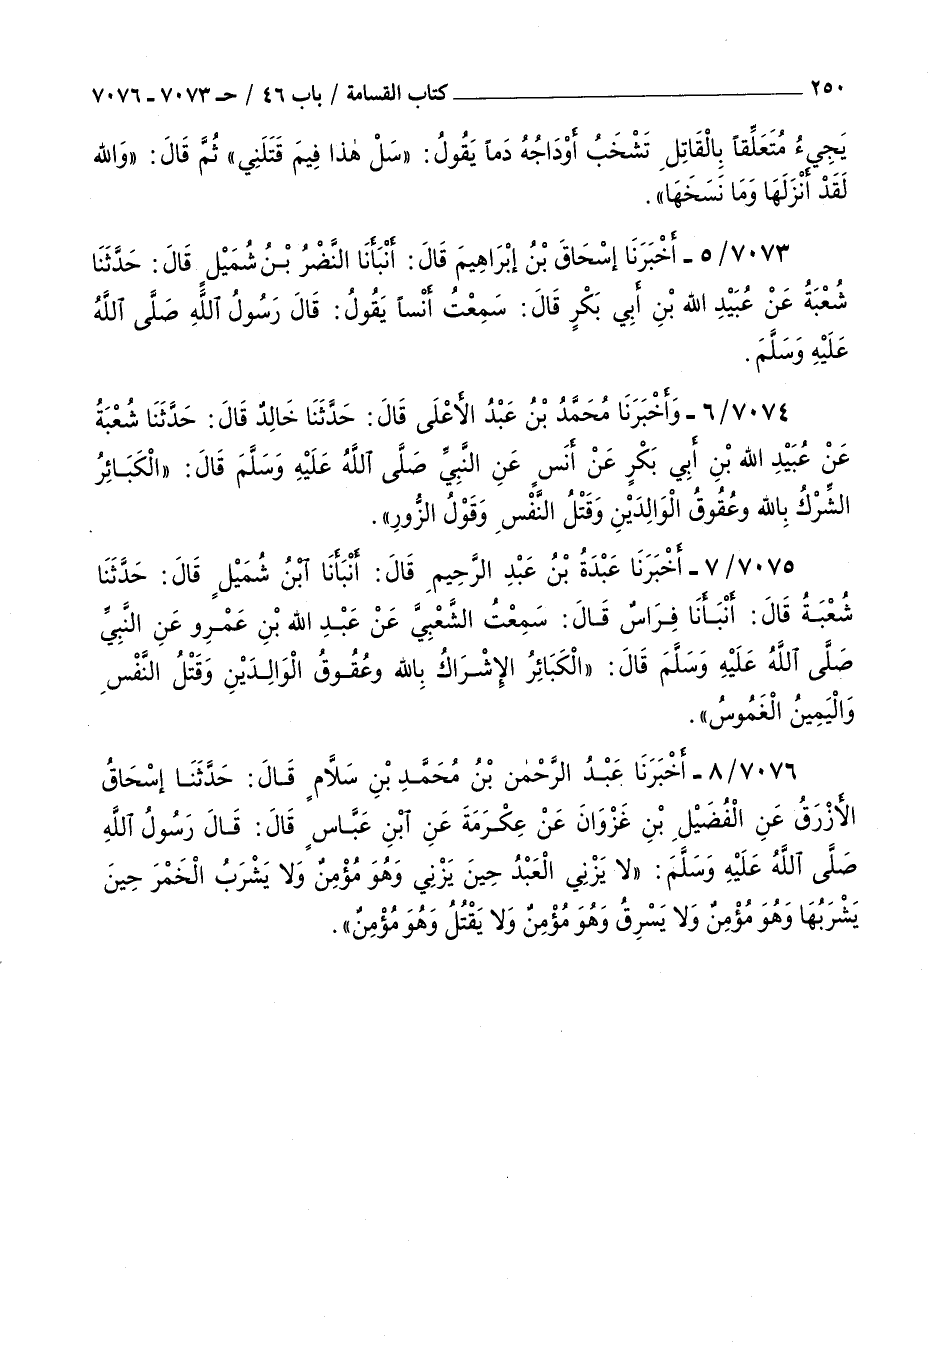 ٢٥٠ ــــــــــــــــــــ كتاب القسامة / باب ٤٦ / حـ ٧٠٧٣ ـ ٧٠٧٦
يَجِيءُ مُتَعَلِّقاً بِالْقَاتِلِ تَشْخَبُ أَوْدَاجُهُ دَماً يَقُولُ: «سَلْ هٰذا فِيمَ قَتَلَنِي» ثُمَّ قَالَ: «وَالله
لَقَدْ أَنْزَلَهَا وَمَا نَسَخَهَا».
٥/٧٠٧٣ ـ أَخْبَرَنَا إسْحَاقَ بْنُ إبْرَاهِيمَ قَالَ: أَنْبَأَنَا النَّضْرُ بْنُ شُمَيْلٍ قَالَ: حَدَّثَنَا
شُعْبَةُ عَنْ عُبَيْدِ الله بْنِ أَبِي بَكْرٍ قَالَ: سَمِعْتُ أَنْساً يَقُولُ: قَالَ رَسُولُ ٱللَّهِ صَلَّى ٱللَّهُ
عَلَيْهِ وَسَلَّمَ.
٦/٧٠٧٤ ـ وَأَخْبَرَنَا مُحَمَّدُ بْنُ عَبْدُ الأَعْلَى قَالَ: حَدَّثَنَا خَالِدٌ قَالَ: حَدَّثَنَا شُعْبَةُ
عَنْ عُبَيْدِ الله بْنِ أَبِي بَكْرٍ عَنْ أَنَسٍ عَنِ النَّبِيِّ صَلَّى ٱللَّهُ عَلَيْهِ وَسَلَّمَ قَالَ: «الْكَبَائِرُ
الشِّرْكُ بِالله وعُقُوقُ الْوَالِدَيْنِ وَقَتْلُ النَّفْسِ وَقَوْلُ الزُّورِ».
٧/٧٠٧٥ ـ أَخْبَرَنَا عَبْدَةُ بْنُ عَبْدِ الرَّحِيمِ قَالَ: أَنْبَأَنَا ٱبْنُ شُمَيْلٍ قَالَ: حَدَّثَنَا
شُعْبَةُ قَالَ: أَنْبَأَنَا فِرَاسٌ قَالَ: سَمِعْتُ الشَّعْبِيَّ عَنْ عَبْدِ الله بْنِ عَمْرٍو عَنِ النَّبِيِّ
صَلَّى ٱللَّهُ عَلَيْهِ وَسَلَّمَ قَالَ: «الْكَبَائِرُ الإِشْرَاكُ بِالله وعُقُوقُ الْوَالِدَيْنِ وَقَتْلُ النَّفْسِ
وَالْيَمِينُ الْغَمُوسُ».
٨/٧٠٧٦ ـ أَخْبَرَنَا عَبْدُ الرَّحْمٰن بْنُ مُحَمَّدِ بْنِ سَلَّامٍ قَالَ: حَدَّثَنَا إسْحَاقُ
الأَزْرَقُ عَنِ الْفُضَيْلِ بْنِ غَزْوَانَ عَنْ عِكْرَمَةَ عَنِ ٱبْنِ عَبَّاسٍ قَالَ: قَالَ رَسُولُ ٱللَّهِ
صَلَّى ٱللَّهُ عَلَيْهِ وَسَلَّمَ: «لا يَزْنِي الْعَبْدُ حِينَ يَزْنِي وَهُوَ مُؤْمِنٌ وَلا يَشْرَبُ الْخَمْرَ حِينَ
يَشْرَبُهَا وَهُوَ مُؤْمِنٌ وَلا يَسْرِقُ وَهُوَ مُؤْمِنٌ وَلا يَقْتُلُ وَهُوَ مُؤْمِنٌ».